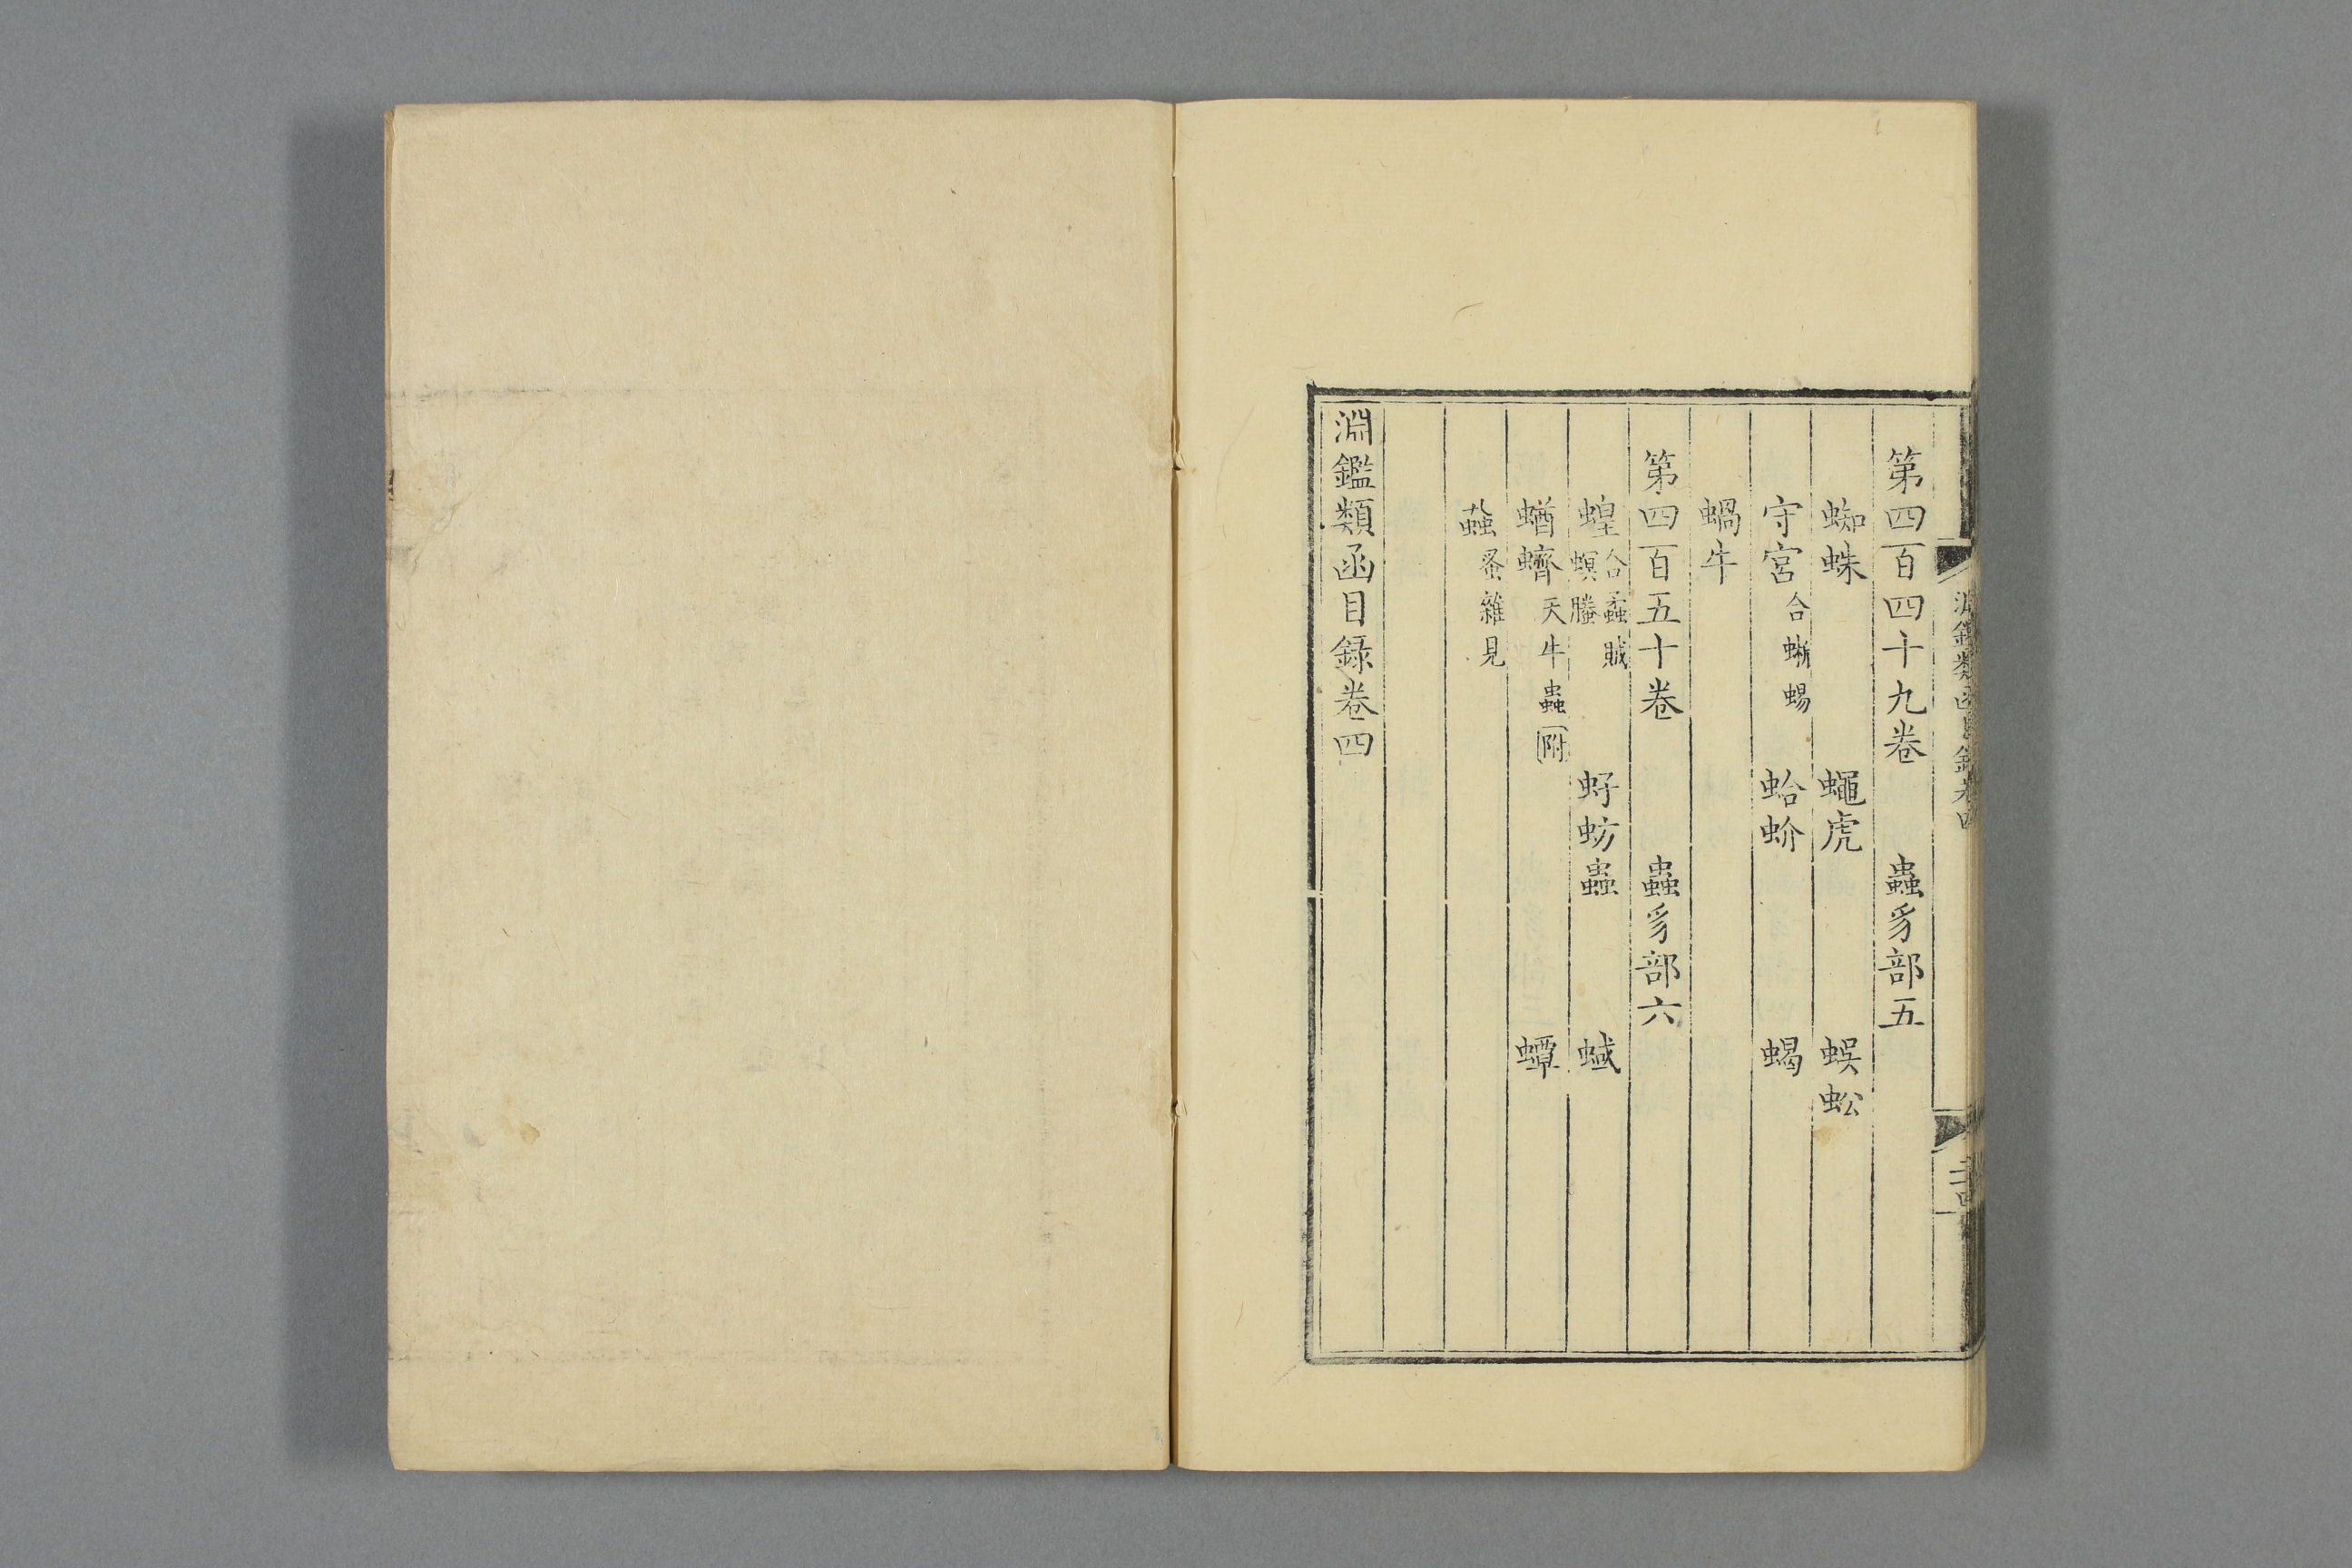 第四百四十九卷　蟲豸部五
蜘蛛　蠅虎　蜈蚣
守宮合蜥蜴　蛤蚧　蝎
蝸牛
第四百五十卷　蟲豸部六
蝗合蟊賊螟螣　虸蚄蟲　蜮
蝤蠐天牛蟲附　蟫
蝨蚤雜見
淵鑑類函目録卷四